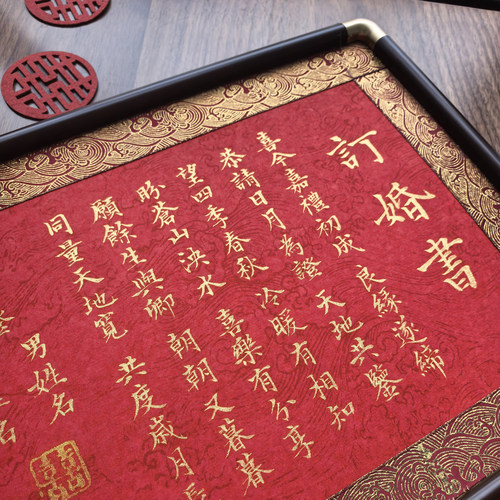 訂婚書
喜今嘉禮初成 良緣遂締
恭請日月為證 天地共鑒
望四季春秋 冷暖有相知
盼蒼山泱水 喜樂有分享
願餘生與卿 朝朝又暮暮
同量天地寬 共度歲月長
男姓名
名
囍
囍